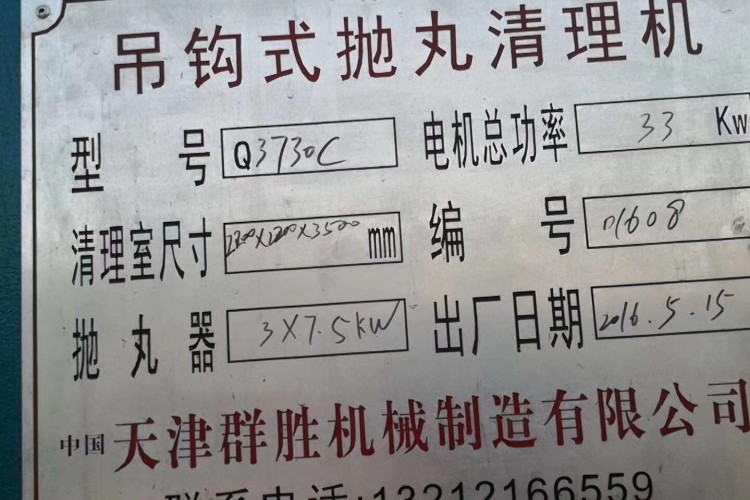 吊钩式抛丸清理机
型号 Q3730C 电机总功率 33 Kw
清理室尺寸 mm 编号 01608
抛丸器 3X7.5KW 出厂日期 2016.5.15
中国 天津群胜机械制造有限公司
联系电话:13212166559